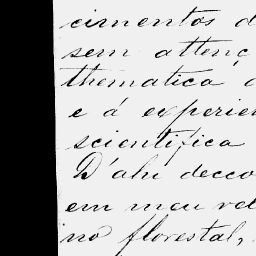 cimentos d
sem attenç
thematica
e á experien
scientifica
D'ahi decco
em meu rel
no florestal,